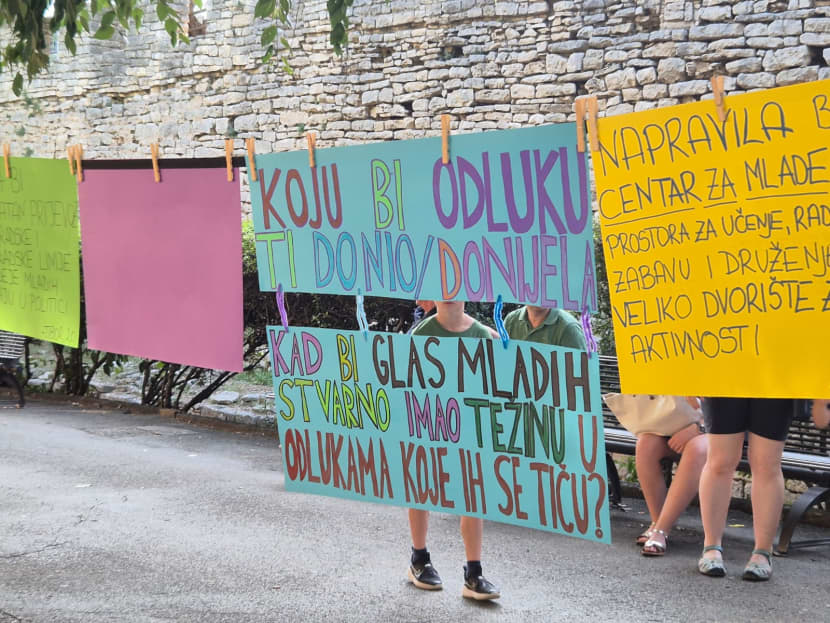 BI
LIMDE
MLADIH
U POLITICI
KOJU BI ODLUKU
TI DONIO/DONIJELA
KAD BI GLAS MLADIH
STVARNO IMAO TEZINU U
ODLUKAMA KOJE IH SE TIČU?
NAPRAVILA
CENTAR ZA MLADE
PROSTORA ZA UČENJE, RAD
ZABAVU I DRUŽENJE
VELIKO DVORIŠTE Z
AKTIVNOSTI